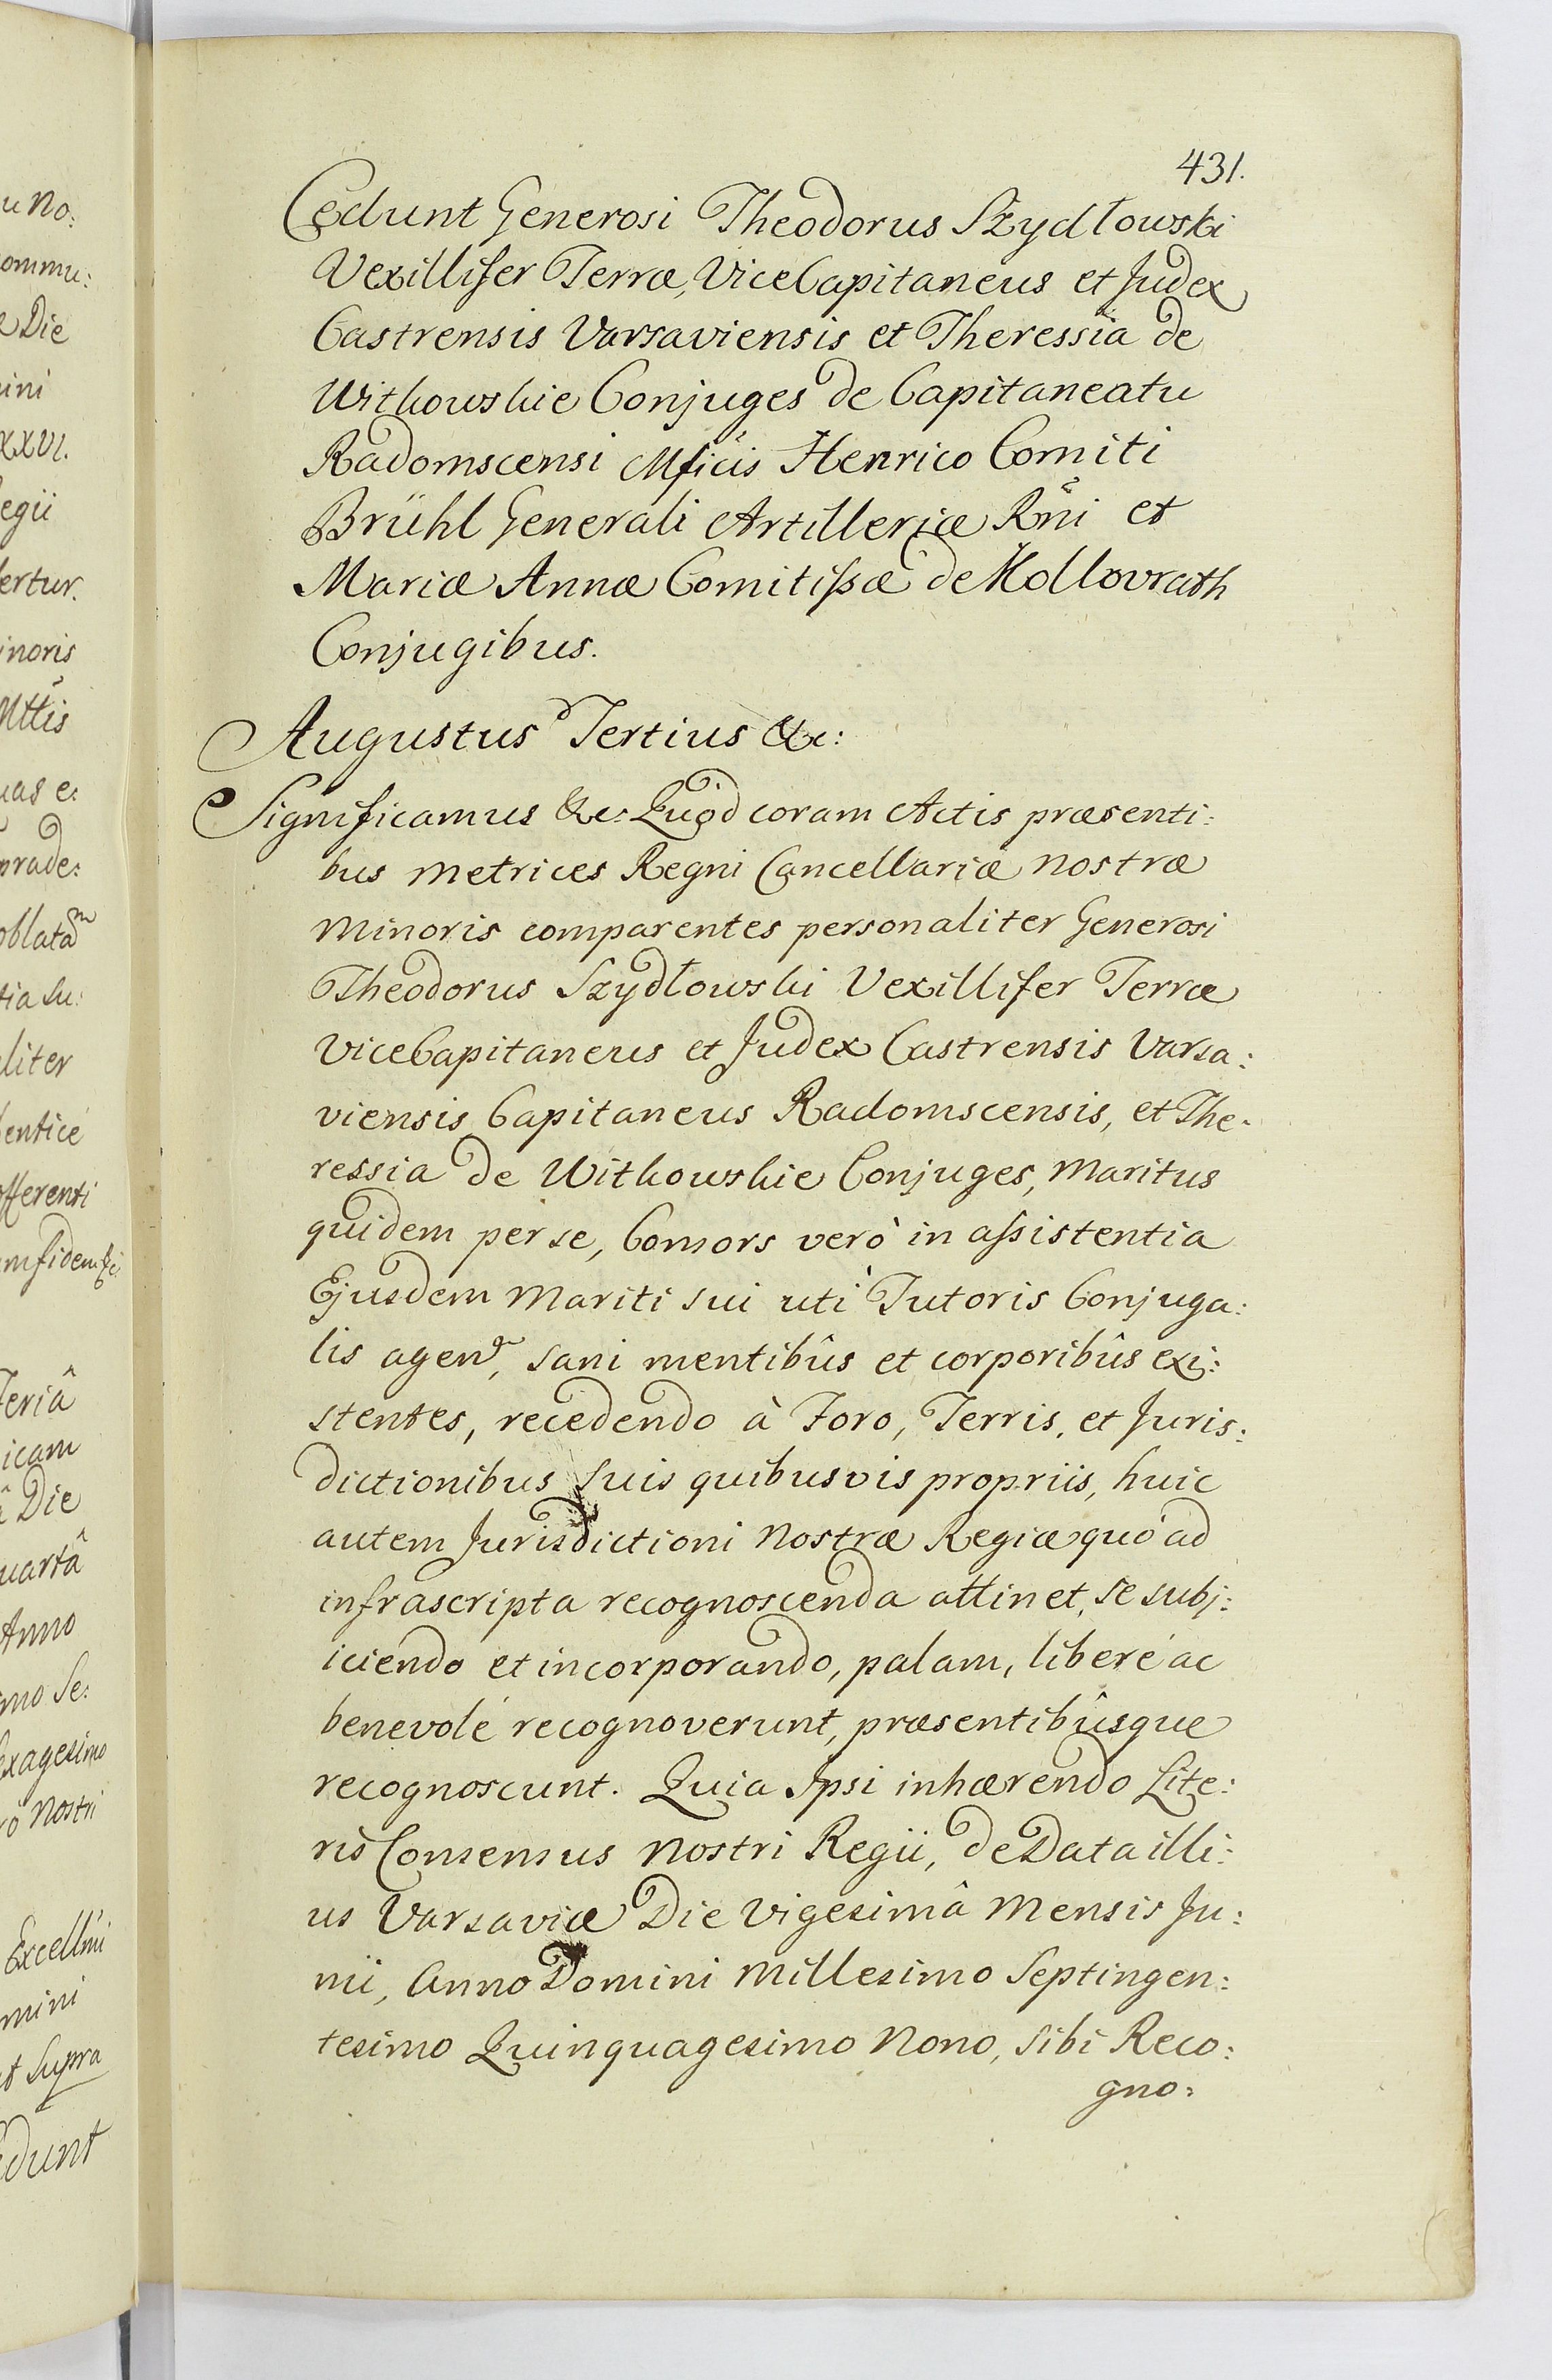 431.
Cedunt Generosi Theodorus Szydłowski
Vexillifer Terræ, ViceCapitaneus et Judex
Castrensis Varsaviensis et Theressia de
Witkowskie Conjuges de Capitaneatu
Radomscensi Mficis Henrico Comiti
Brühl Generali Artilleriæ Rni et
Mariæ Annæ Comitissæ de Kollovrath
Conjugibus.
Augustus Tertius &c:
Significamus &c: Quod coram Actis præsenti:
bus Metrices Regni Cancellariæ Nostræ
Minoris comparentes personaliter Generosi
Theodorus Szydłowski Vexillifer Terræ
ViceCapitaneus et Judex Castrensis Varsa:
viensis Capitaneus Radomscensis, et The:
ressia de Witkowskie Conjuges, Maritus
quidem per se, Consors verò in assistentia
Ejusdem Mariti sui uti Tutoris Conjuga:
lis agen, sani mentibûs et corporibûs exi:
stentes, recedendo à Foro, Terris, et Juris:
dictionibus suis quibusvis propriis, huic
autem Jurisdictioni Nostræ Regiæ quò ad
infrascripta recognoscenda attinet, se subj:
iciendo et incorporando, palam, liberé ac
benevolé recognoverunt, præsentibûsque
recognoscunt. Quia Ipsi inhærendo Lite:
ris Consensus Nostri Regii, de Data illi:
us Varsaviæ Die Vigesimâ Mensis Ju:
nii, Anno Domini Millesimo Septingen:
tesimo Quinquagesimo Nono, sibi Reco:
gno: